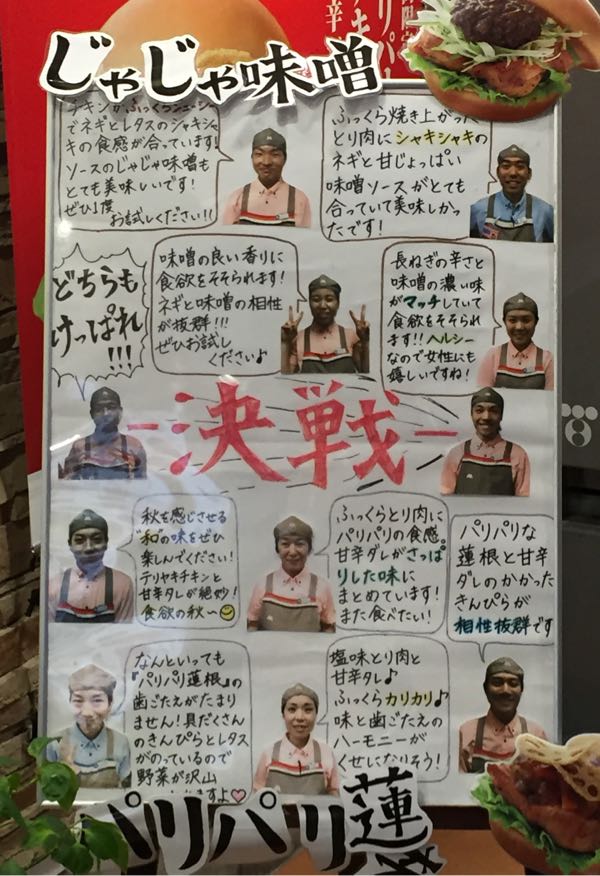 じゃじゃ味噌
チキンがふっくらジューシー
でネギとレタスのシャキシャ
キの食感が合っています!
ソースのじゃじゃ味噌も
とても美味しいです!
ぜひ1度
お試しください!!
ふっくら焼き上がった
とり肉にシャキシャキの
ネギと甘じょっぱい
味噌ソースがとても
合っていて美味しかっ
たです!
どちらも
けっぱれ
!!!
味噌の良い香りに
食欲をそそられます!
ネギと味噌の相性
が抜群!!!
ぜひお試し
ください♪
長ねぎの辛さと
味噌の濃い味
がマッチしていて
食欲をそそられ
ます!!ヘルシー
なので女性にも
嬉しいですね!
-決戦-
秋を感じさせる
"和"の味をぜひ
楽しんでください!
テリヤキチキンと
甘辛タレが絶妙!
食欲の秋〜
ふっくらとり肉に
パリパリの食感。
甘辛ダレがさっぱ
りした味に
まとめています!
また食べたい!
パリパリな
蓮根と甘辛
ダレのかかった
きんぴらが
相性抜群です
なんといっても
『パリパリ蓮根』の
歯ごたえがたまり
ません!具だくさん
のきんぴらとレタス
がのっているので
野菜が沢山
ますよ♡
塩味とり肉と
甘辛ダレ♪
ふっくらカリカリ♪
味と歯ごたえの
ハーモニーが
くせになりそう!
パリパリ蓮